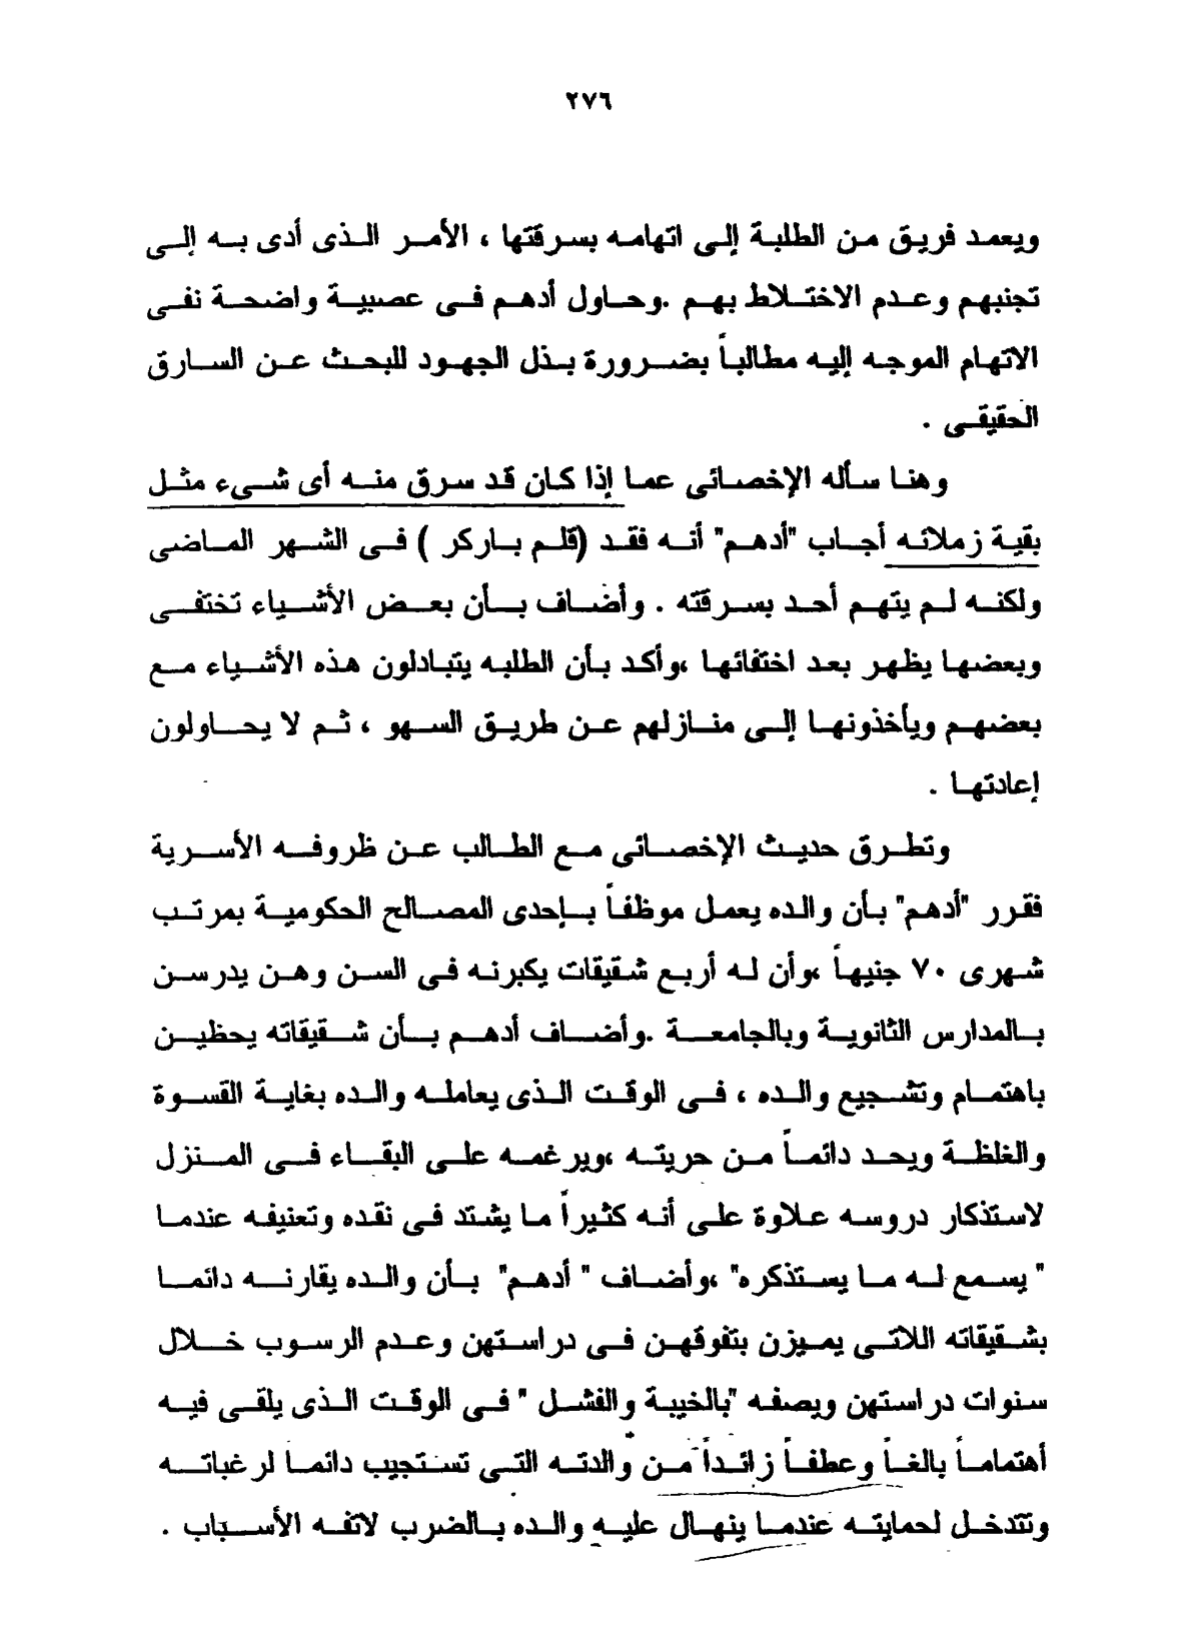 ٢٧٦
ويعمد فريق من الطلبة إلى اتهامه بسرقتها ، الأمر الذى أدى به إلى
تجنبهم وعدم الاختلاط بهم .وحاول أدهم فى عصبية واضحة نفى
الاتهام الموجه إليه مطالباً بضرورة بذل الجهود للبحث عن السارق
الحقيقى .
وهنا سأله الإخصائى عما إذا كان قد سرق منه أى شىء مثل
بقية زملائه أجاب "أدهم" أنه فقد (قلم باركر ) فى الشهر الماضى
ولكنه لم يتهم أحد بسرقته . وأضاف بأن بعض الأشياء تختفى
وبعضها يظهر بعد اختفائها ،وأكد بأن الطلبه يتبادلون هذه الأشياء مع
بعضهم ويأخذونها إلى منازلهم عن طريق السهو ، ثم لا يحاولون
إعادتها .
وتطرق حديث الإخصائى مع الطالب عن ظروفه الأسرية
فقرر "أدهم" بأن والده يعمل موظفاً بإحدى المصالح الحكومية بمرتب
شهرى ٧٠ جنيهاً ،وأن له أربع شقيقات يكبرنه فى السن وهن يدرسن
بالمدارس الثانوية وبالجامعة .وأضاف أدهم بأن شقيقاته يحظين
باهتمام وتشجيع والده ، فى الوقت الذى يعامله والده بغاية القسوة
والغلظة ويحد دائماً من حريته ،ويرغمه على البقاء فى المنزل
لاستذكار دروسه علاوة على أنه كثيراً ما يشتد فى نقده وتعنيفه عندما
" يسمع له ما يستذكره" ،وأضاف " أدهم" بأن والده يقارنه دائما
بشقيقاته اللاتى يميزن بتفوقهن فى دراستهن وعدم الرسوب خلال
سنوات دراستهن ويصفه "بالخيبة والفشل " فى الوقت الذى يلقى فيه
أهتماماً بالغاً وعطفاً زائداً من والدته التى تستجيب دائما لرغباته
وتتدخل لحمايته عندما ينهال عليه والده بالضرب لاتفه الأسباب .